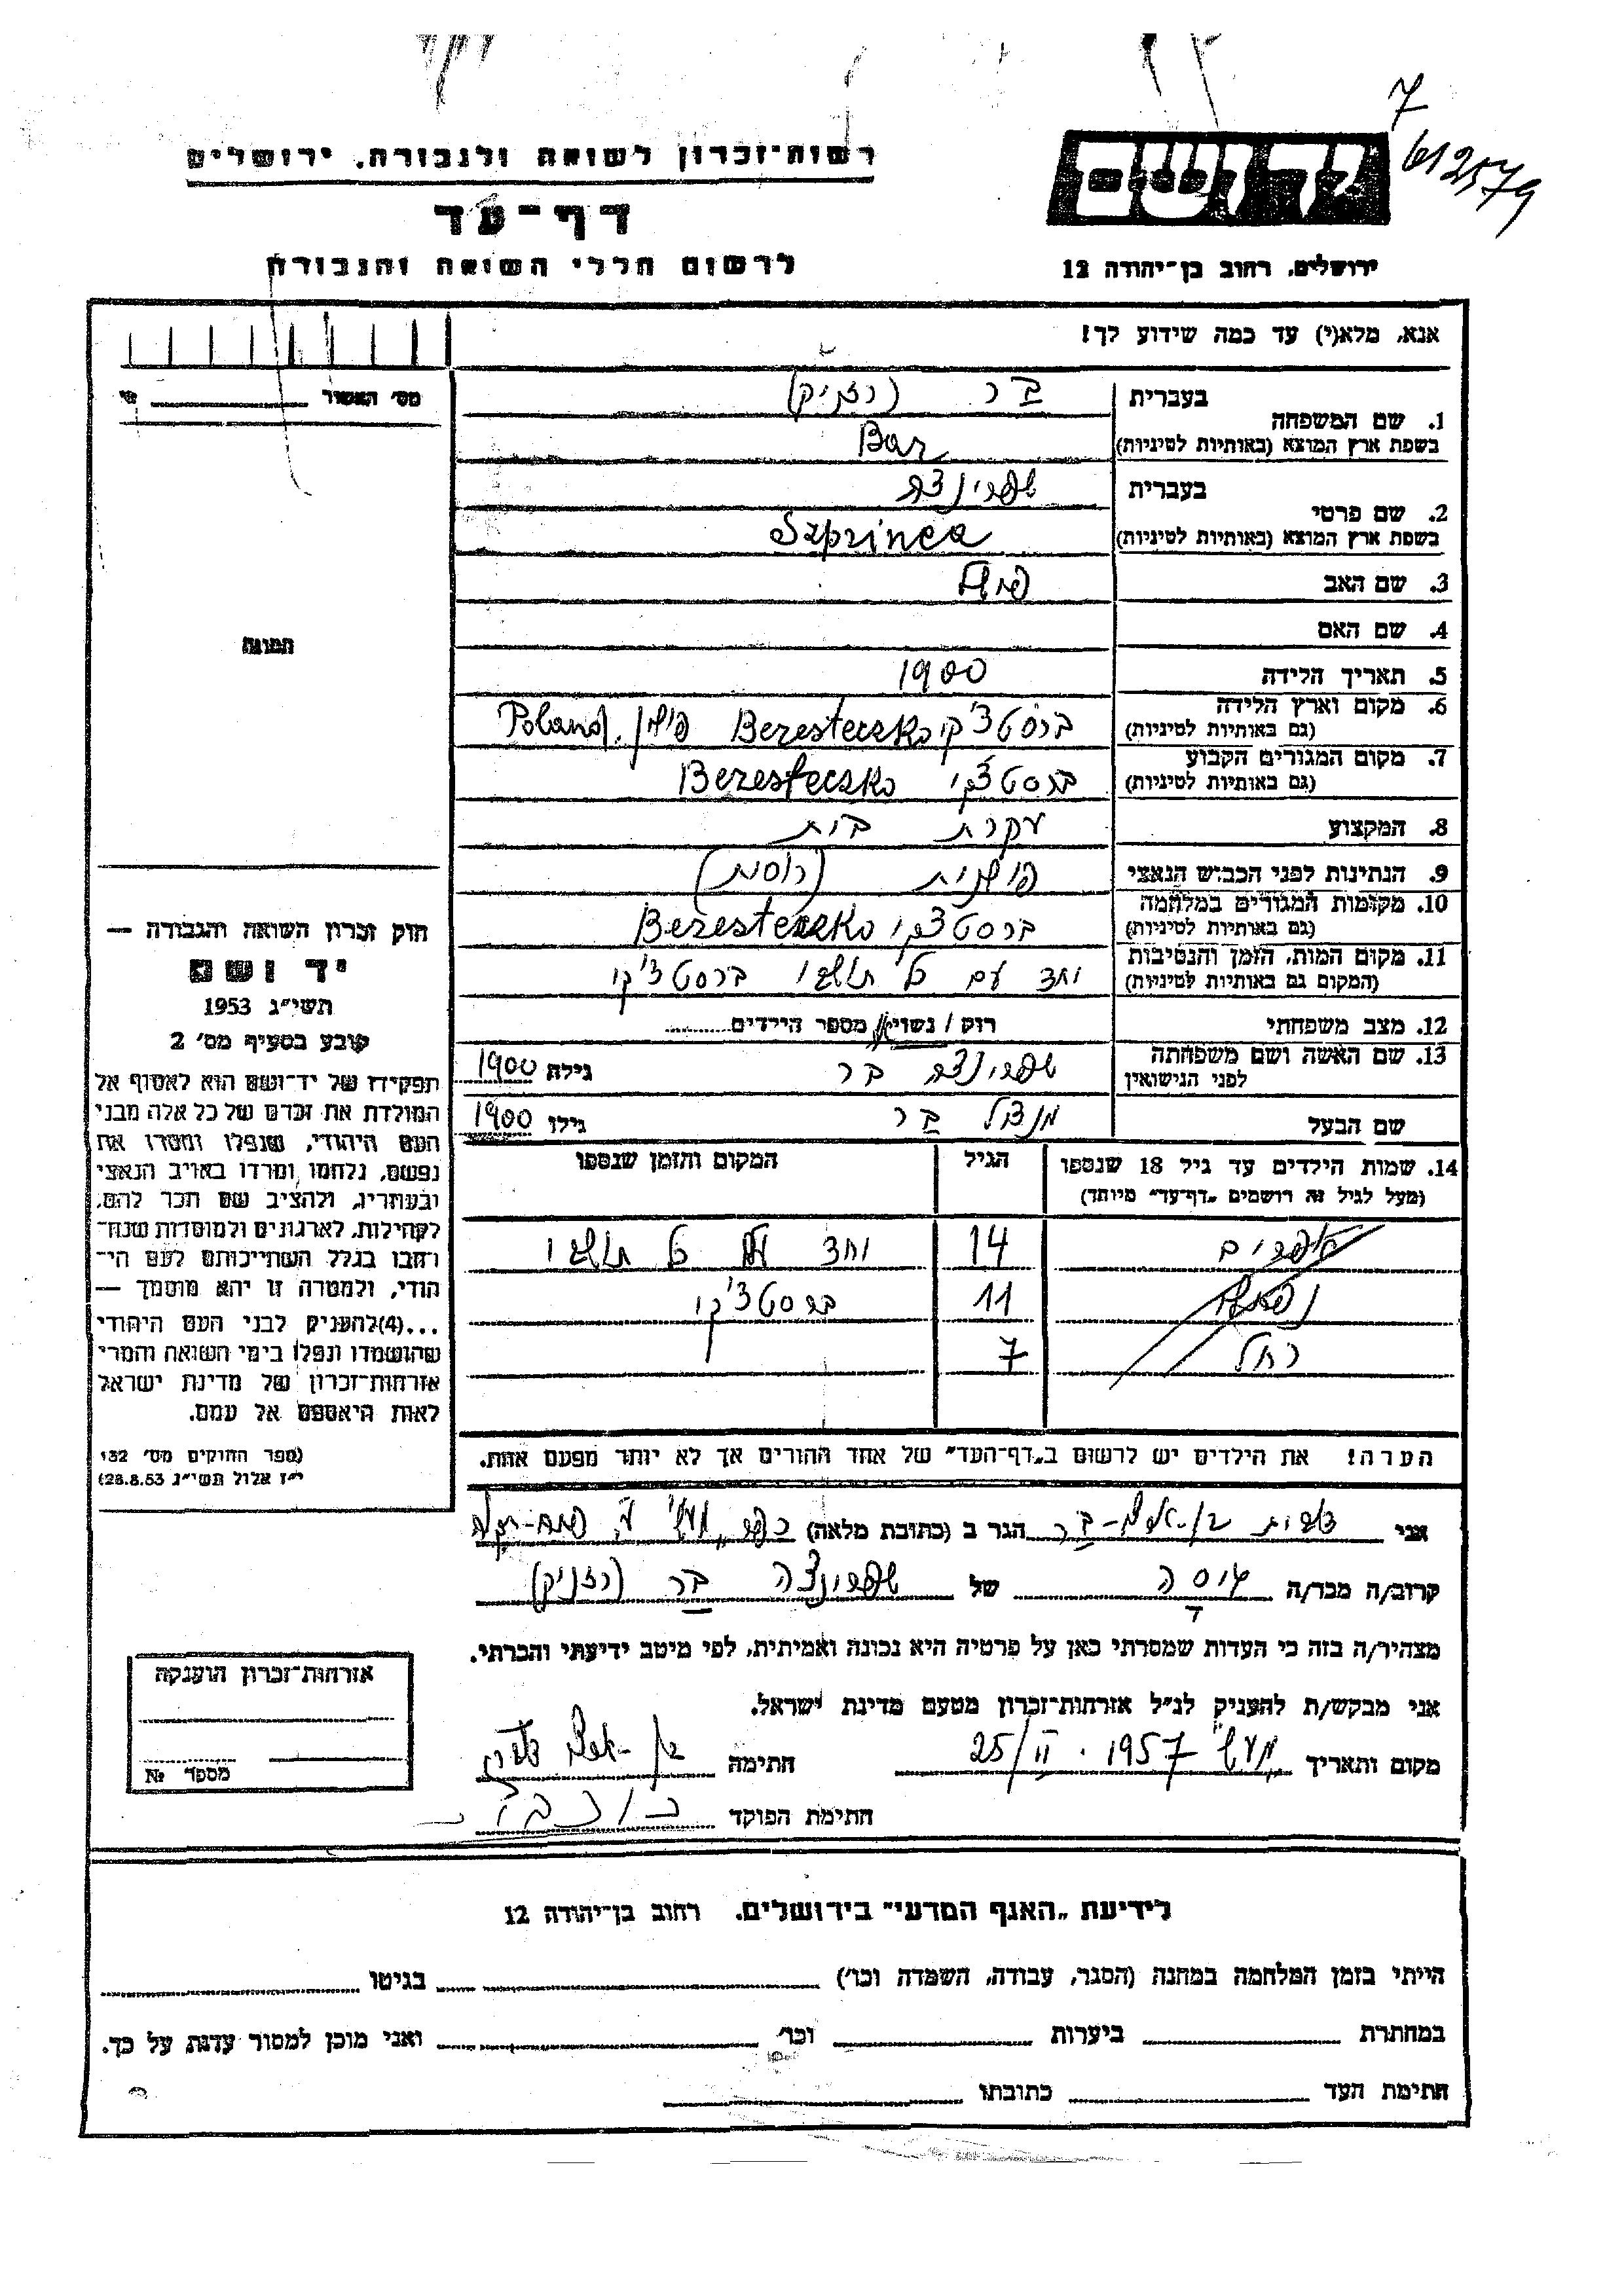 7
612579
רשות־זכרון לשואה ולגבורה. ירושלים
דף־עד
לרשום חללי השואה והגבורה
יד ושם
ירושלים. רחוב בן־יהודה 12
אנא. מלא(י) עד כמה שידוע לך!
1. שם המשפחה
בעברית בר (רזניק)
בשפת ארץ המוצא (באותיות לטיניות) Bar
2. שם פרטי
בעברית שפרינצה
בשפת ארץ המוצא (באותיות לטיניות) Szprinca
3. שם האב
4. שם האם
5. תאריך הלידה 1900
6. מקום וארץ הלידה
(גם באותיות לטיניות) ברסטצ'קו Beresteczko פולין, Poland
7. מקום המגורים הקבוע
(גם באותיות לטיניות) ברסטצ'קו Beresteczko
8. המקצוע עקרת בית
9. הנתינות לפני הכבוש הנאצי פולנית (רוסית)
10. מקומות המגורים במלחמה
(גם באותיות לטיניות) ברסטצ'קו Beresteczko
11. מקום המות. הזמן והנסיבות
(המקום גם באותיות לטיניות) יחד עם כל תושבי ברסטצ'קו
12. מצב משפחתי רוק / נשוי/אה מספר הילדים
13. שם האשה ושם משפחתה
לפני הנישואין שפרינצה בר גילה 1900
שם הבעל מנדל בר גילו 1900
14. שמות הילדים עד גיל 18 שנספו הגיל המקום והזמן שנספו
(מעל לגיל זה רושמים „דף־עד" מיוחד)
אפרים 14 יחד עם כל תושבי
11 ברסטצ'קו
רחל 7
הערה! את הילדים יש לרשום ב„דף־העד" של אחד ההורים אך לא יותר מפעם אחת.
אני בר הגר ב (כתובת מלאה)
קרוב/ה מכר/ה גיסה של שפרינצה בר (רזניק)
מצהיר/ה בזה כי העדות שמסרתי כאן על פרטיה היא נכונה ואמיתית, לפי מיטב ידיעתי והכרתי.
אני מבקש/ת להעניק לנ"ל אזרחות־זכרון מטעם מדינת ישראל.
מקום ותאריך 25/II. 1957 חתימה
חתימת הפוקד
מס' האשור
תמונה
חוק זכרון השואה והגבורה —
יד ושם
תשי"ג 1953
קובע בסעיף מס' 2
תפקידו של יד־ושם הוא לאסוף אל
המולדת את זכרם של כל אלה מבני
העם היהודי, שנפלו ומסרו את
נפשם, נלחמו ומרדו באויב הנאצי
ובעוזריו, ולהציב שם וזכר להם,
לקהילות, לארגונים ולמוסדות שנח־
רבו בגלל השתייכותם לעם הי־
הודי, ולמטרה זו יהא מוסמך —
...(4)להעניק לבני העם היהודי
שהושמדו ונפלו בימי השואה והמרי
אזרחות־זכרון של מדינת ישראל
לאות היאספם אל עמם.
(ספר החוקים מס' 132
י"ז אלול תשי"ג 28.8.53)
אזרחות־זכרון הוענקה
מספר №
לידיעת „האגף המדעי" בירושלים. רחוב בן־יהודה 12
הייתי בזמן המלחמה במחנה (הסגר, עבודה, השמדה וכו') בגיטו
במחתרת ביערות וכו' ואני מוכן למסור עדות על כך.
חתימת העד כתובתו